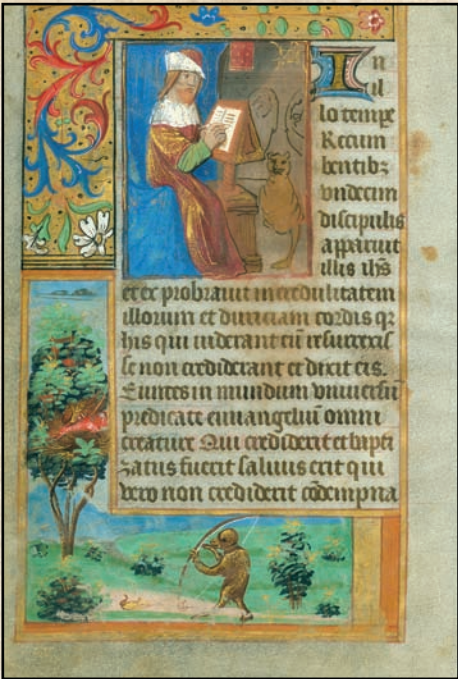 In
il
lo tempe
Recum
bentibz
vndecim
discipulis
apparuit
illis ihs
et ex probrauit incredulitatem
illorum et duriciam cordis qz
his qui uiderant eū resurrexis
se non crediderant et dixit eis.
Euntes in mundum vniuersū
predicate euuangeliū omni
creature Qui crediderit et bapti
zatus fuerit saluus erit qui
vero non crediderit cōdempna